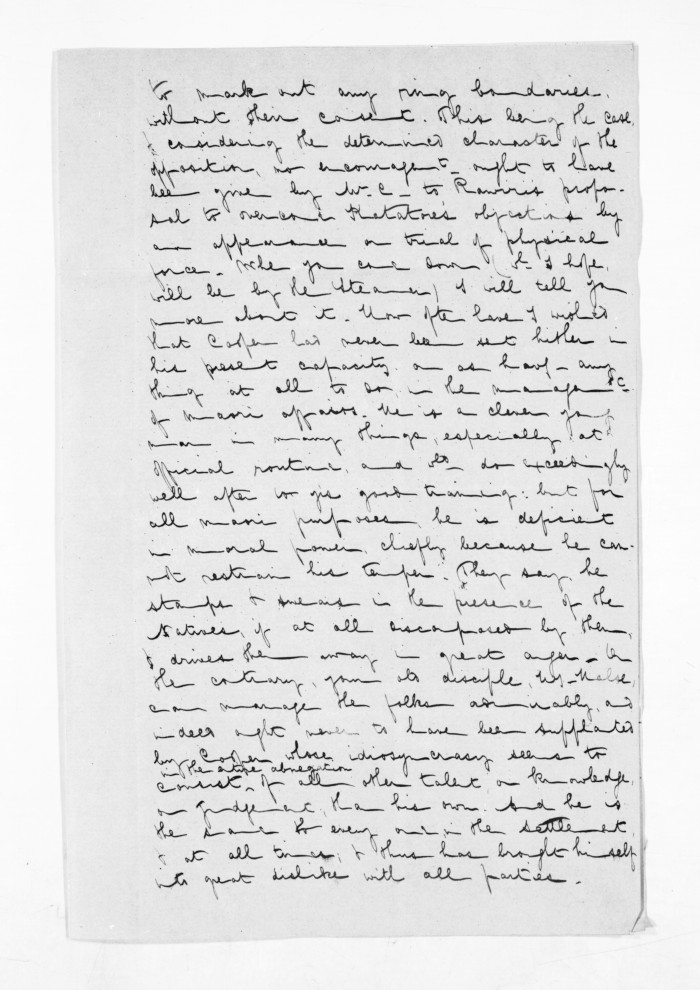 to mark out any ring boundaries,
without their consent. This being the case,
& considering the determined character of the
opposition, no encouragemt. ought to have
been given by Mr. C– to Rawiri's propo-
sal to overcome Katatore's objections by
an appearance or trial of physical
force – When you come down (wh. I hope,
will be by the Steamer) I will tell you
more about it. How often have I wished
that Cooper had never been sent hither in
his present capacity, or as havg. any
thing at all to do, in the managemt. &c
of Maori affairs. He is a clever young
man in many things, especially at
official routine, and wd. do exceedingly
well after 10 yrs good training: but for
all Maori purposes, he is deficient
in moral power, chiefly because he can-
not restrain his temper. They say, he
stamps & swears in the presence of the
Natives, if at all discomposed by them,
& drives them away in great anger – On
the contrary, your old disciple, Mr. Halse,
can manage the folks admirably, and
indeed ought never to have been supplanted
by Cooper whose idiosyncrasy seems to
in the entire abnegation
consist, of all other talent or knowledge,
or judgement, than his own. And he is
the same to every one in the settlement,
& at all times, & thus has brought himself
into great dislike with all parties.